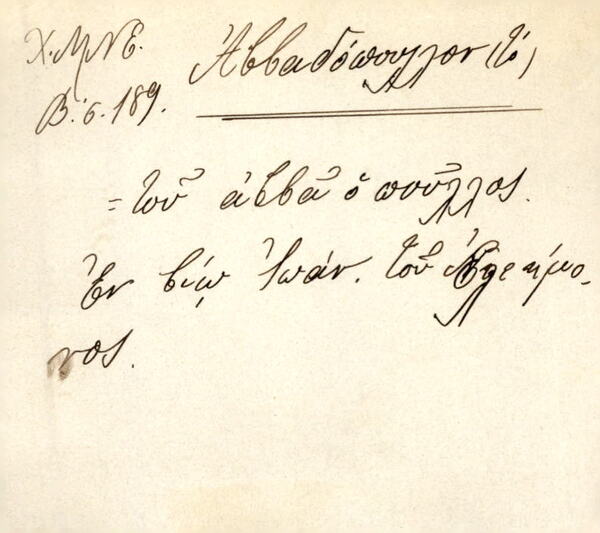 Χ.Μ.ΝΕ.
Β.΄ σ. 189.
Ἀββαδόπουλλον (τό)
= τοῦ ἀββᾶ ὁ ποῦλλος.
Ἐν βίῳ Ἰωάν. τοῦ Ἐλεήμο-
νος.